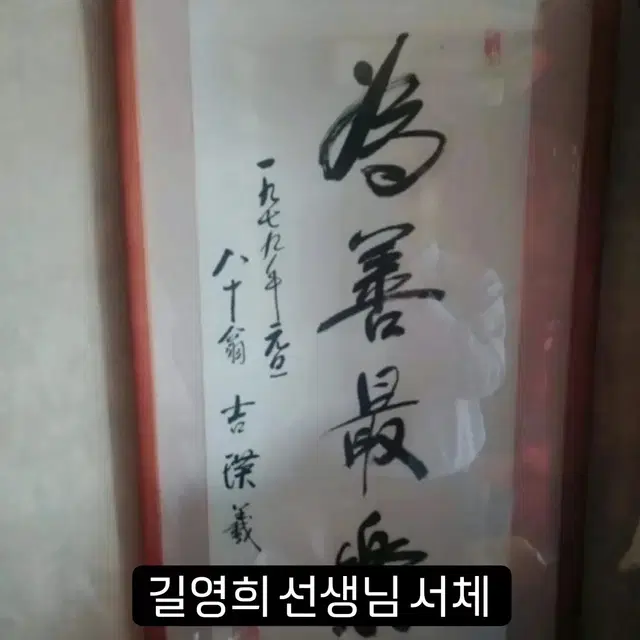 為善最樂
一九七九年 元旦
八十翁 吉瑛羲
길영희 선생님 서체